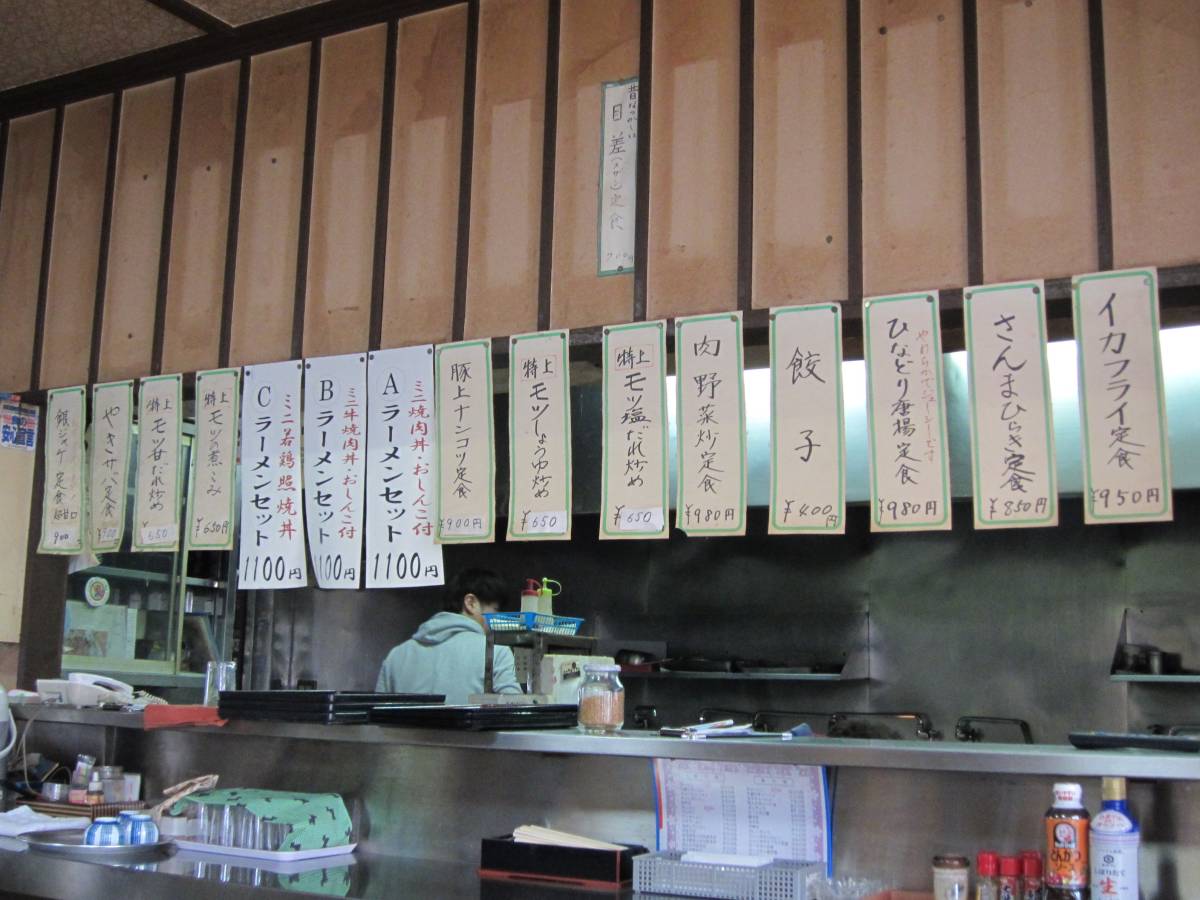 昔なつかしい
目差(メザシ)定食
700円
イカフライ定食
¥950円
さんまひらき定食
¥850円
やわらかでジューシーです
ひなどり唐揚定食
¥980円
餃子
¥400円
肉野菜炒定食
¥980円
特上
モツ塩だれ炒め
¥650
特上
モツしょうゆ炒め
¥650
豚上ナンコツ定食
¥900円
ミニ焼肉丼、おしんこ付
Aラーメンセット
1100円
ミニ牛焼肉丼、おしんこ付
Bラーメンセット
1100円
ミニ若鶏照焼丼
Cラーメンセット
1100円
特上
モツの煮こみ
¥650円
特上
モツ甘だれ炒め
650
やきサバ定食
¥900
銀ジャケ定食
900
とんかつ
ソース
生